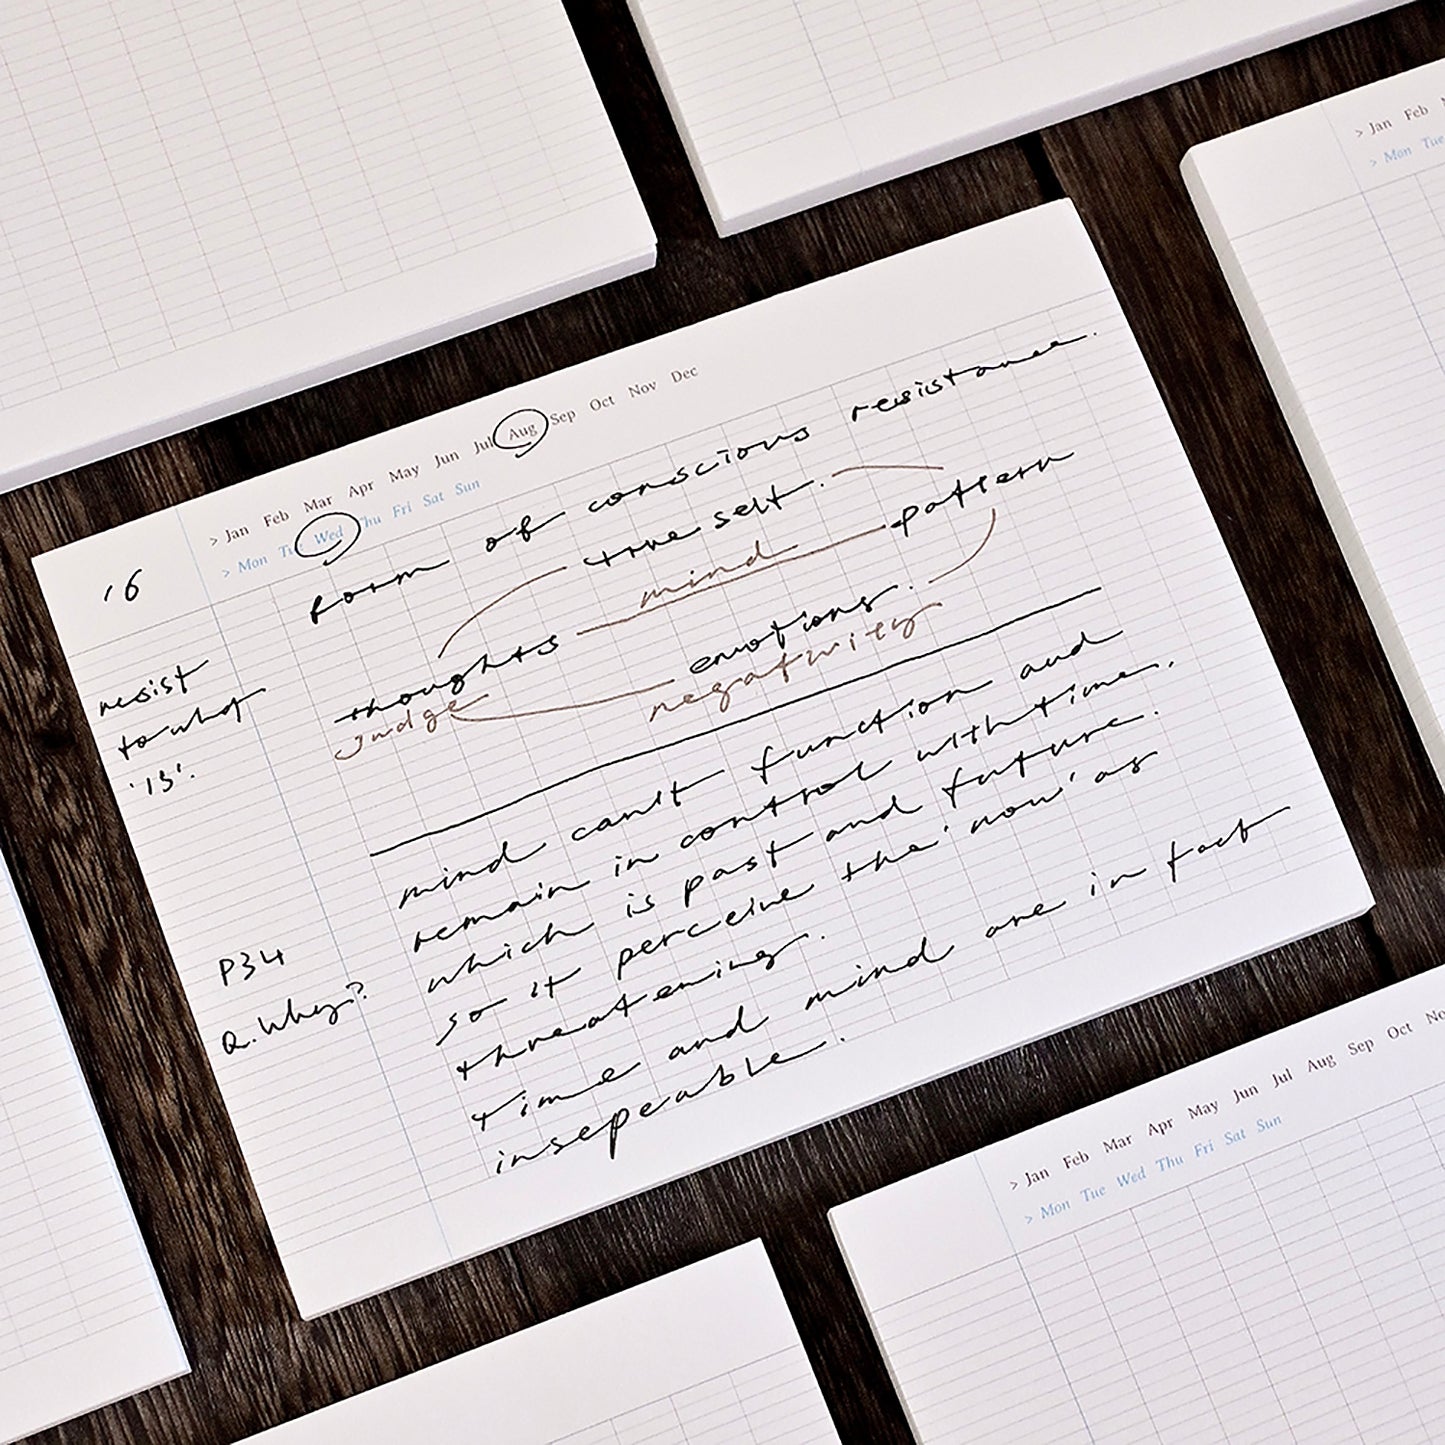 > Jan Feb
> Mon Tue
> Jan Feb Mar Apr May Jun Jul Aug Sep Oct Nov Dec
> Mon Tue Wed Thu Fri Sat Sun
'16
form of conscious resistance.
true self. pattern
mind
thoughts emotions.
judge negativity
resist
to what
'is'.
mind can't function and
remain in control with time.
which is past and future.
so it perceive the 'now' as
threatening.
time and mind are in fact
insepeable.
P34
Q. Why?
> Jan Feb Mar Apr May Jun Jul Aug Sep Oct
> Mon Tue Wed Thu Fri Sat Sun